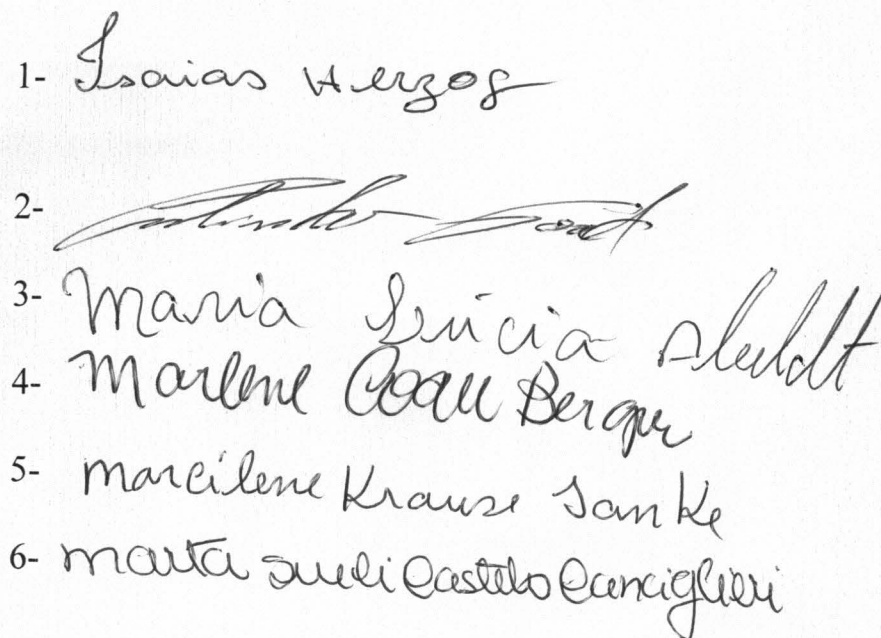 1- Isaias Herzog
2-
3- Maria Lúcia
4- Marlene Berger
5- Marcilene Krause Janke
6- Marta Sueli Castelo Canciglieri